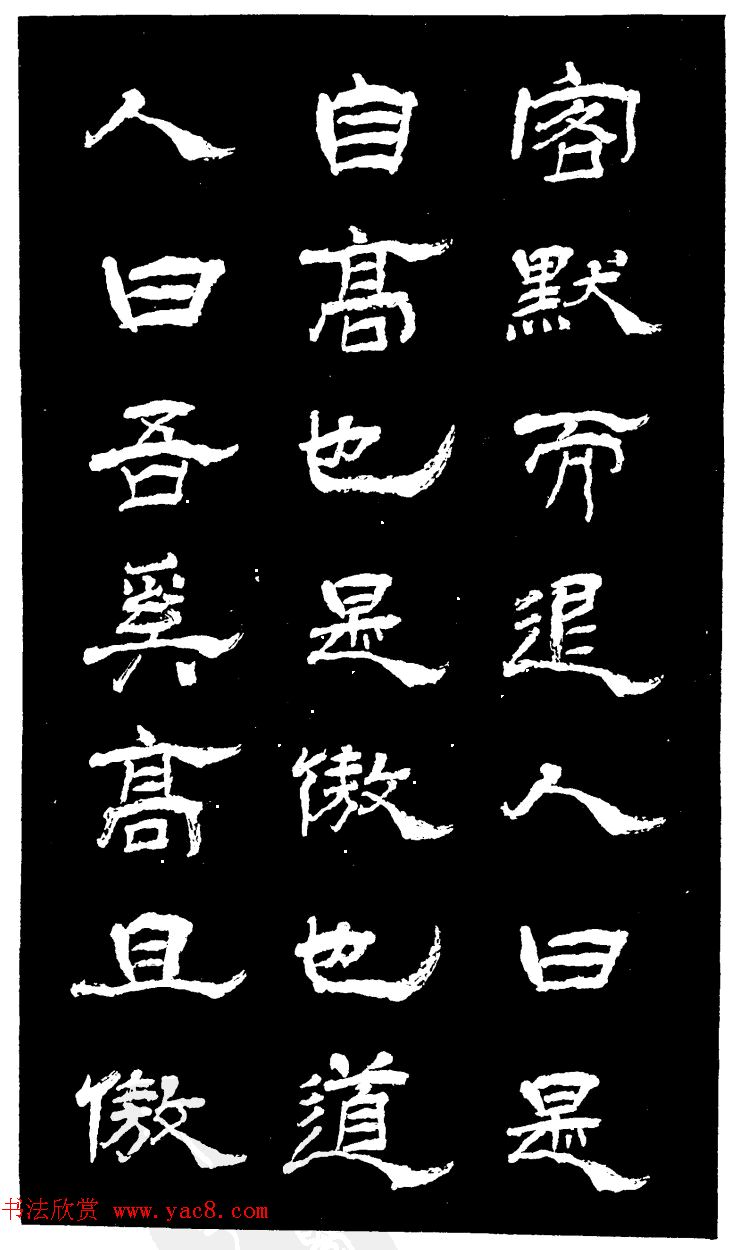 客默而退人曰是
自高也是傲也道
人曰吾奚高且傲
书法欣赏 www.yac8.com